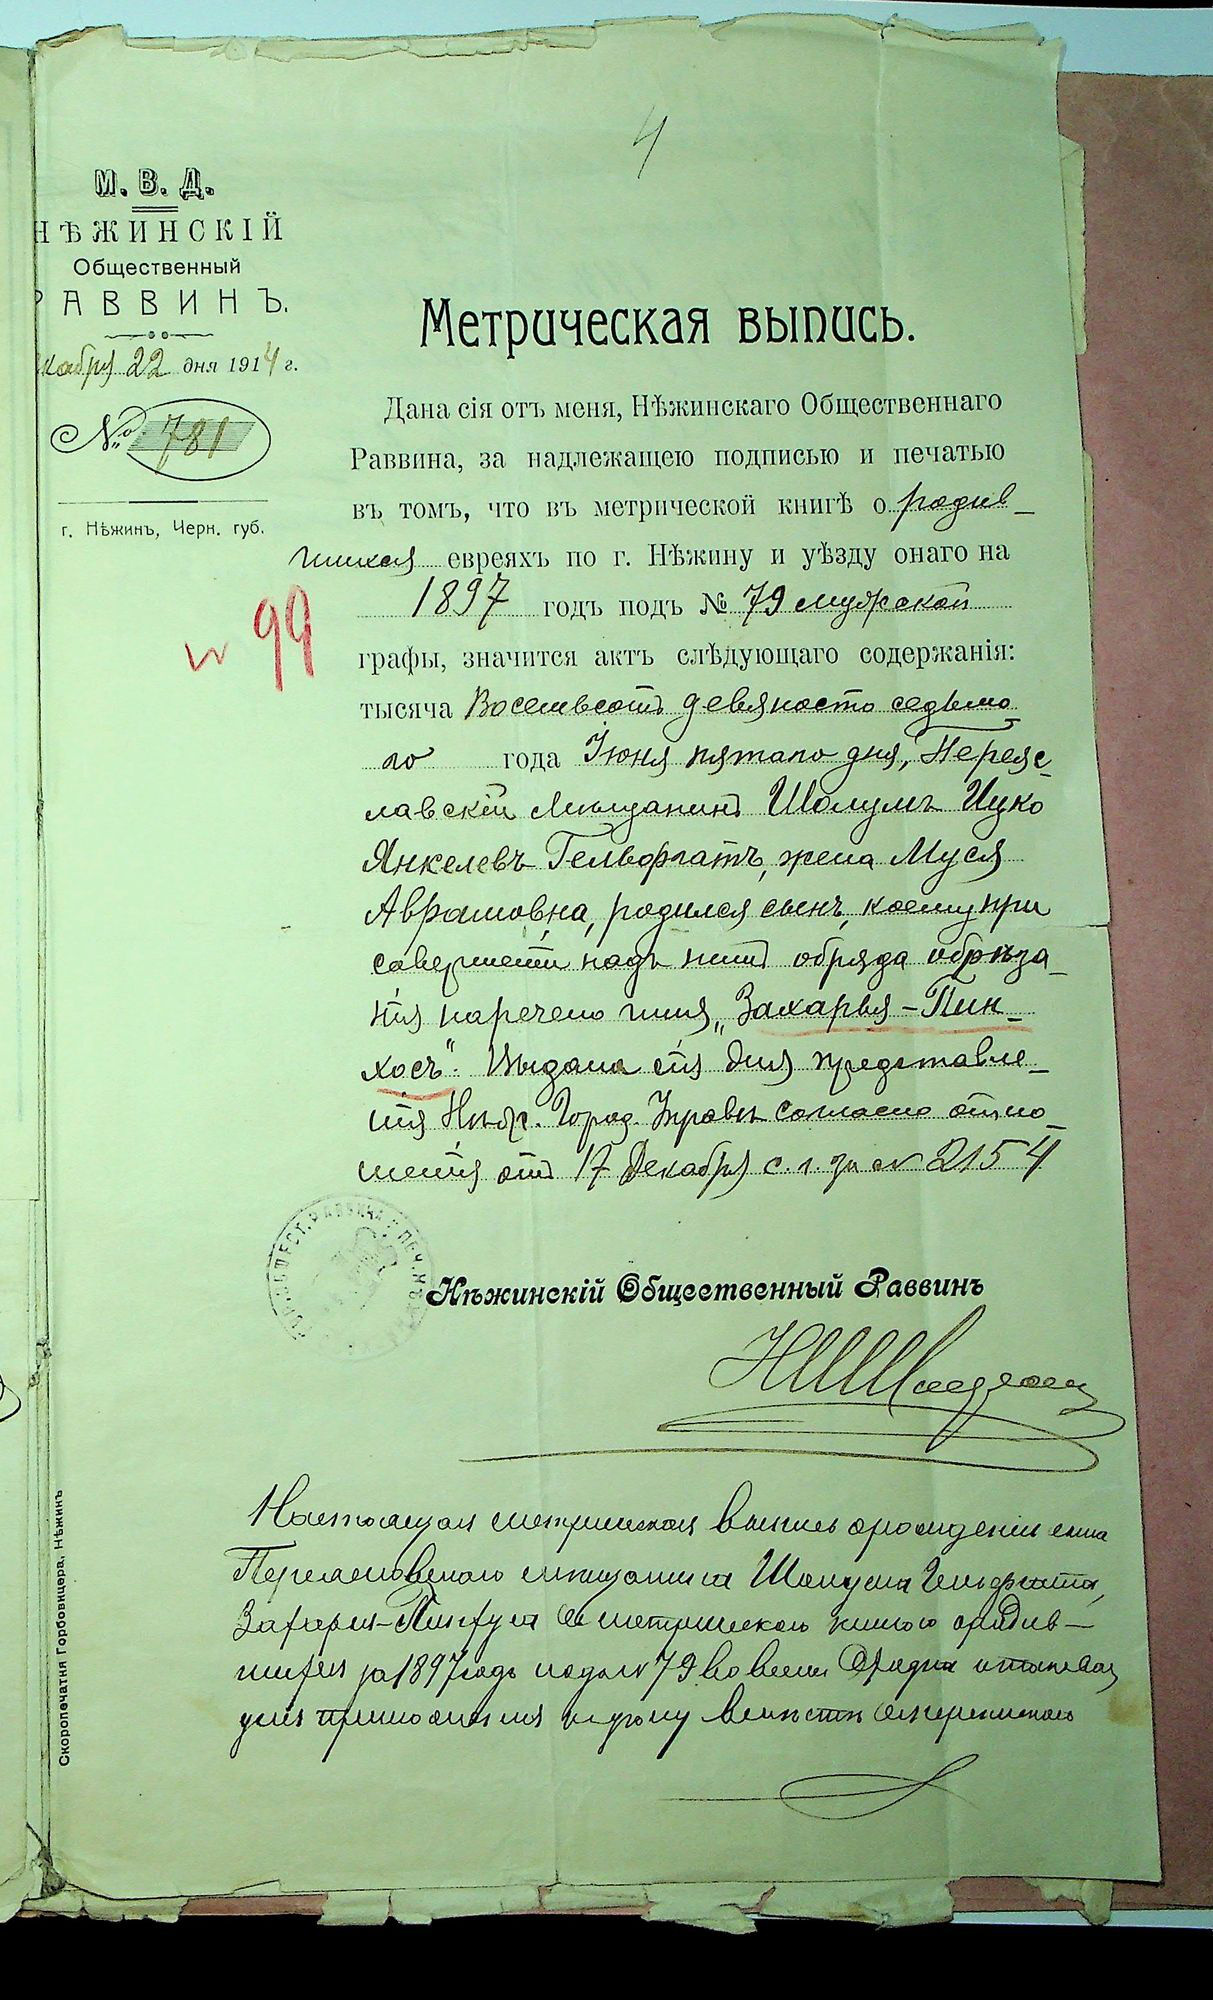 4
М. В. Д.
НѢЖИНСКІЙ
Общественный
РАВВИНЪ.
кабря 22 дня 1914 г.
№ 781
г. Нѣжинъ, Черн. губ.
№ 99
Метрическая выпись.
Дана сія отъ меня, Нѣжинскаго Общественнаго
Раввина, за надлежащею подписью и печатью
въ томъ, что въ метрической книгѣ о родив-
шихся евреяхъ по г. Нѣжину и уѣзду онаго на
1897 годъ подъ № 79 мужской
графы, значится актъ слѣдующаго содержанія:
тысяча Восемьсотъ девяносто седьмо
го года Іюня пятаго дня, Переяс-
лавскій мѣщанинъ Шолумъ Ицко
Янкелевъ Гельфгатъ, жена Муся
Абрамовна, родился сынъ, коему при
совершеніи надъ нимъ обряда обрѣза-
нія наречено имя „Захарья-Пин-
хосъ". Выдана сія для представле-
нія Нѣж. Город. Управѣ согласно отно-
шенія отъ 17 Декабря с. г. за № 2154
Нѣжинскій Общественный Раввинъ
Настоящая метрическая выпись о рожденіи сына
Переяславскаго мѣщанина Шолума Гельфгата,
Захарія-Пинхуса съ метрическою книгою о родив-
шихся за 1897 годъ подъ № 79 во всемъ сходна и таковая
для приложенія къ
Скоропечатня Горбовицера, Нѣжинъ